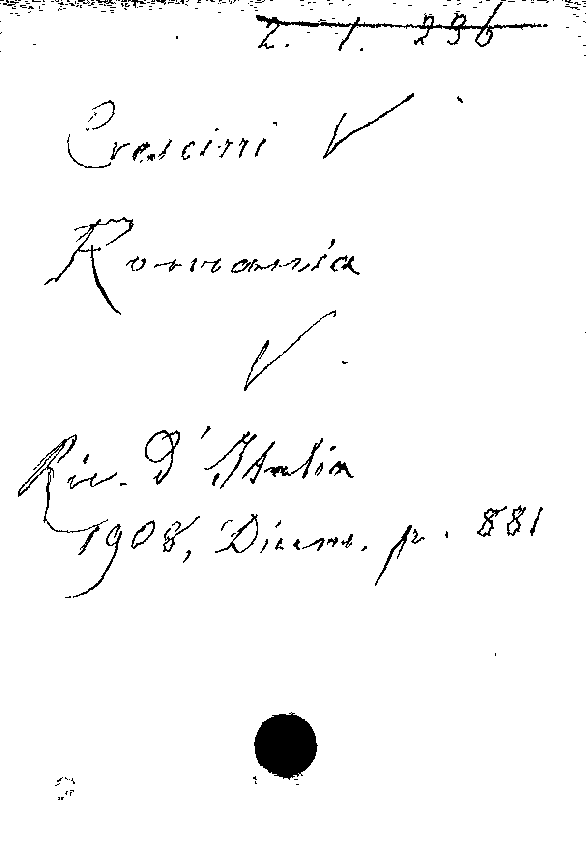 2. 1. 236
Crescini V
Romania
V.
Riv. D'Italia
1908, Dicem. p. 881